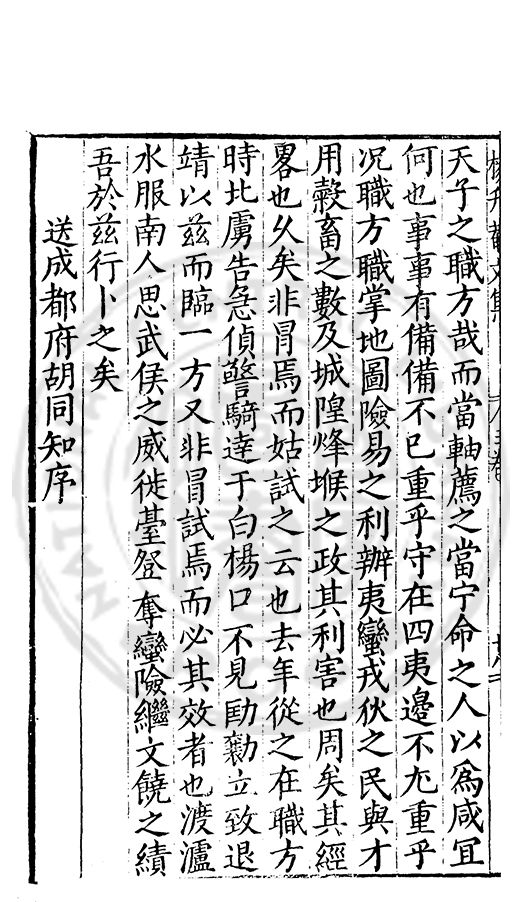 天子之職方哉而當軸薦之當宁命之人以爲咸宜
何也事事有備備不已重乎守在四夷邊不尤重乎
况職方職掌地圖險易之利辦夷蠻戎狄之民與才
用穀畜之數及城隍烽堠之政其利害也周矣其經
畧也久矣非冒焉而姑試之云也去年從之在職方
時北虜告急偵警騎逹于白楊口不見勛勷立致退
靖以兹而臨一方又非冒試焉而必其效者也渡瀘
水服南人思武侯之威徙臺登奪蠻險繼文饒之績
吾於兹行卜之矣
送成都府胡同知序